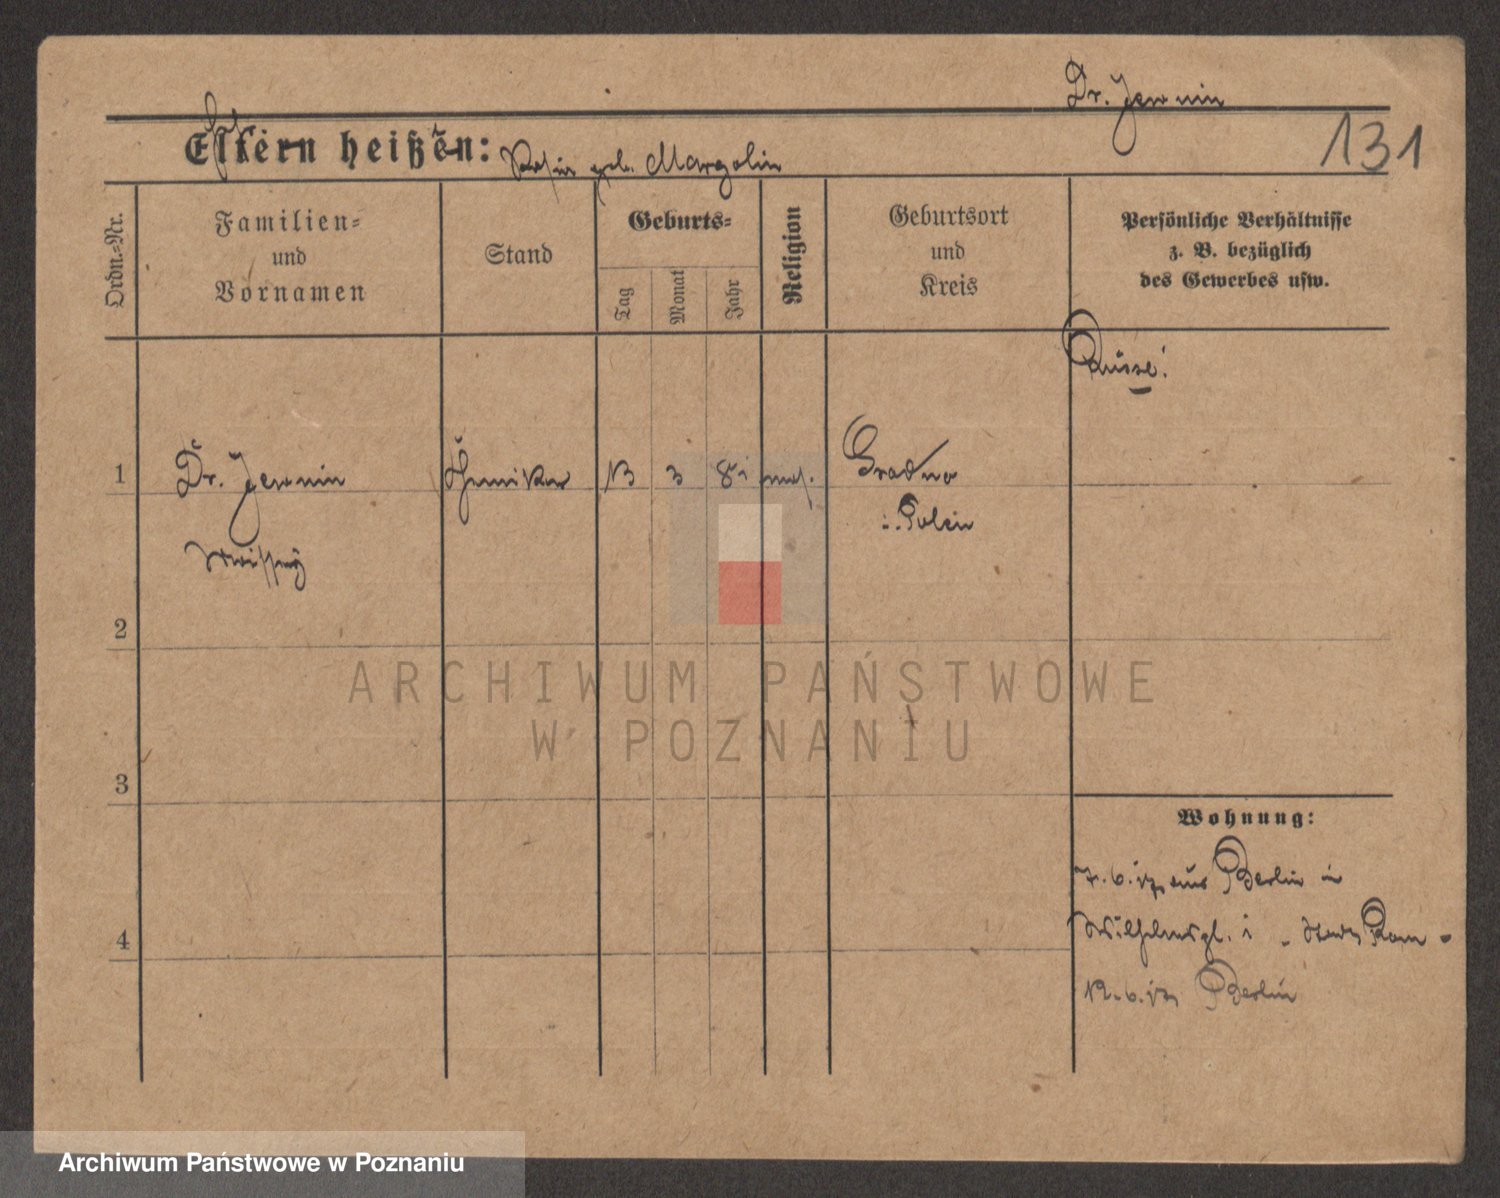 Dr. Jewnin
131
Eltern heißen:
geb. Margolin
Ordn.-Nr.
Familien-
und
Vornamen
Stand
Geburts-
Tag
Monat
Jahr
Religion
Geburtsort
und
Kreis
Persönliche Verhältnisse
z. B. bezüglich
des Gewerbes usw.
Russe!
1
Dr. Jewnin
Chemiker
13
3
81
mos.
Grodno
i. Polen
2
3
4
Wohnung:
7. 6. 17 aus Berlin in
Wilhelmspl. 1
12. 6. 17 Berlin
ARCHIWUM PAŃSTWOWE
W POZNANIU
Archiwum Państwowe w Poznaniu